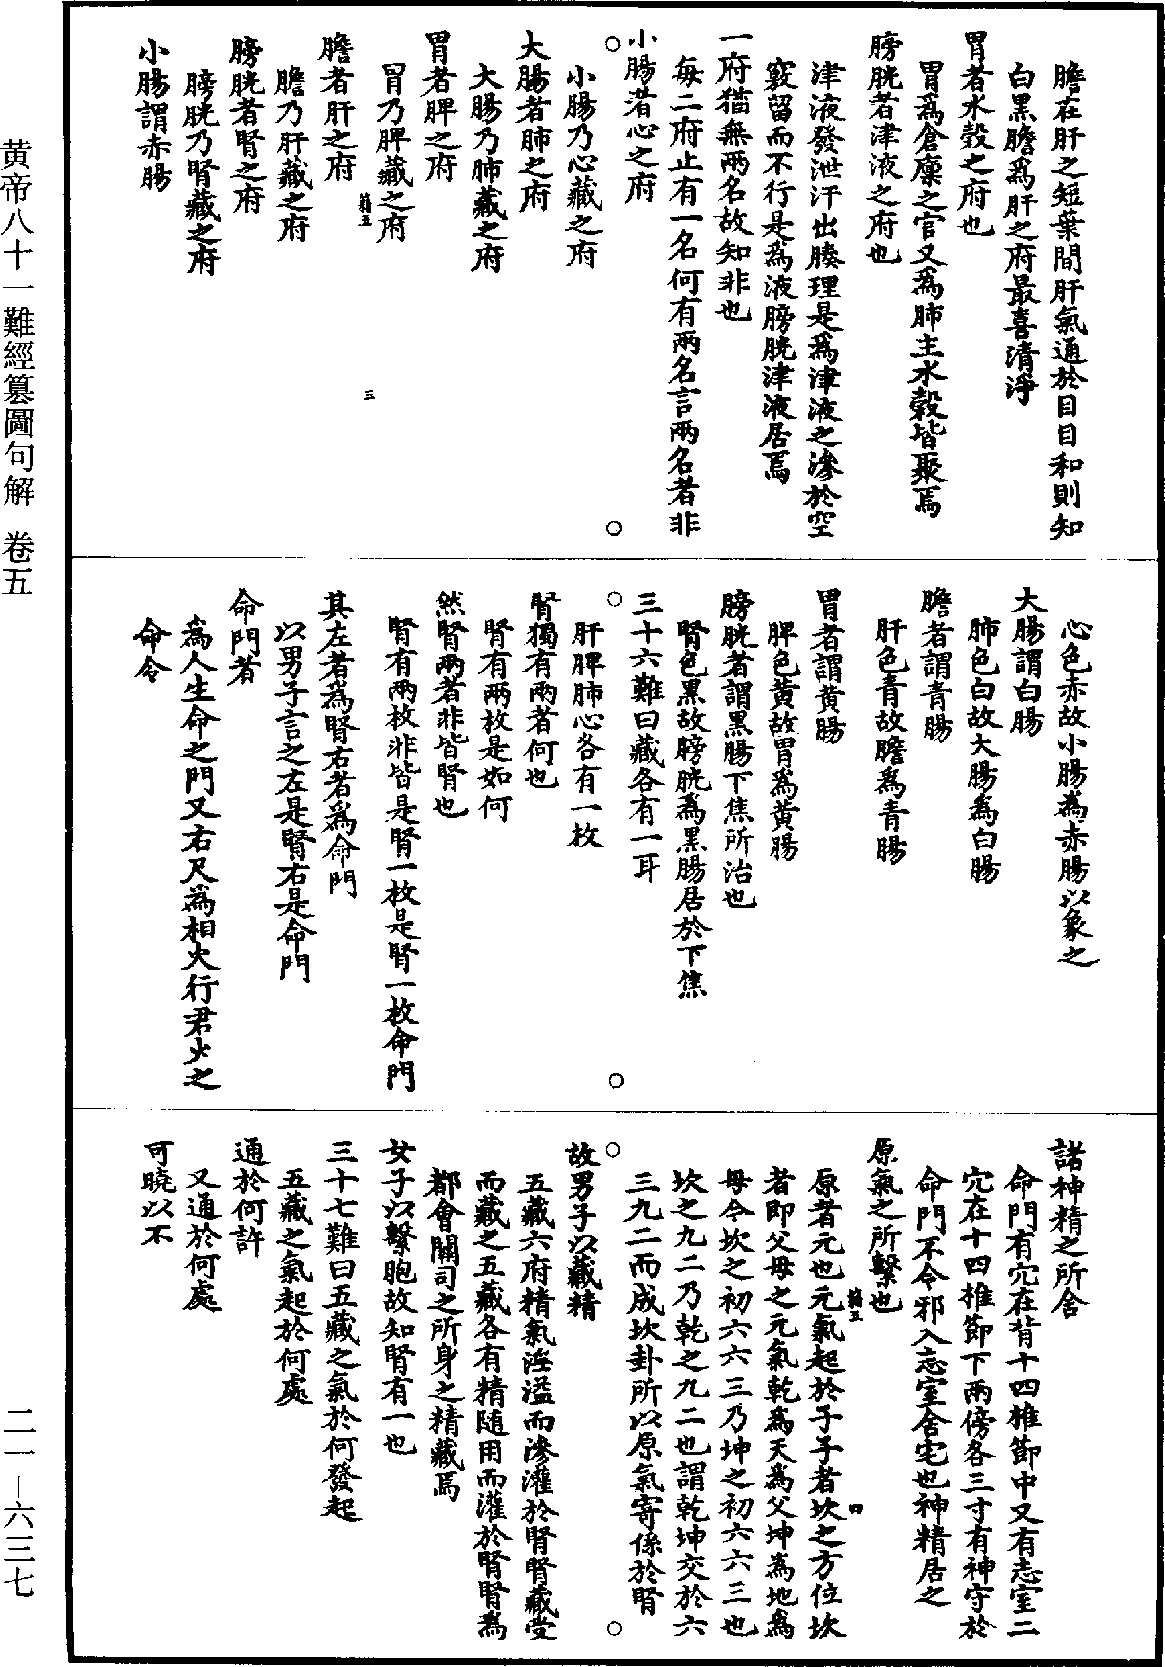 膽在肝之短葉間肝氣通於目目和則知
白黑膽爲肝之府最喜清淨
胃者水穀之府也
胃爲倉廩之官又爲肺主水穀皆聚焉
膀胱者津液之府也
津液發泄汗出腠理是爲津液之滲於空
竅留而不行是爲液膀胱津液居焉
一府猶無兩名故知非也
每二府止有一名何有兩名言兩名者非
小腸者心之府
小腸乃心藏之府
大腸者肺之府
大腸乃肺藏之府
胃者脾之府
胃乃脾藏之府
膽者肝之府
膽乃肝藏之府
膀胱者腎之府
膀胱乃腎藏之府
小腸謂赤腸
心色赤故小腸爲赤腸以象之
大腸謂白腸
肺色白故大腸爲白腸
膽者謂青腸
肝色青故膽爲青腸
胃者謂黃腸
脾色黃故胃爲黃腸
膀胱者謂黑腸下焦所治也
腎色黑故膀胱爲黑腸居於下焦
三十六難曰藏各有一耳
肝脾肺心各有一枚
腎獨有兩者何也
腎有兩枚是如何
然腎兩者非皆腎也
腎有兩枚非皆是腎一枚是腎一枚命門
其左者爲腎右者爲命門
以男子言之左是腎右是命門
命門者
爲人生命之門又右尺爲相火行君火之
命令
諸神精之所舍
命門有穴在背十四椎節中又有志室二
穴在十四椎節下兩傍各三寸有神守於
命門不令邪入志室舍宅也神精居之
原氣之所繫也
原者元也元氣起於子子者坎之方位坎
者即父母之元氣乾爲天爲父坤爲地爲
母今坎之初六六三乃坤之初六六三也
坎之九二乃乾之九二也謂乾坤交於六
三九二而成坎卦所以原氣寄係於腎
故男子以藏精
五藏六府精氣淫溢而滲灌於腎腎藏受
而藏之五藏各有精隨用而灌於腎腎爲
都會關司之所身之精藏焉
女子以繫胞故知腎有一也
三十七難曰五藏之氣於何發起
五藏之氣起於何處
通於何許
又通於何處
可曉以不
黃帝八十一難經纂圖句解 卷五
二一—六三七